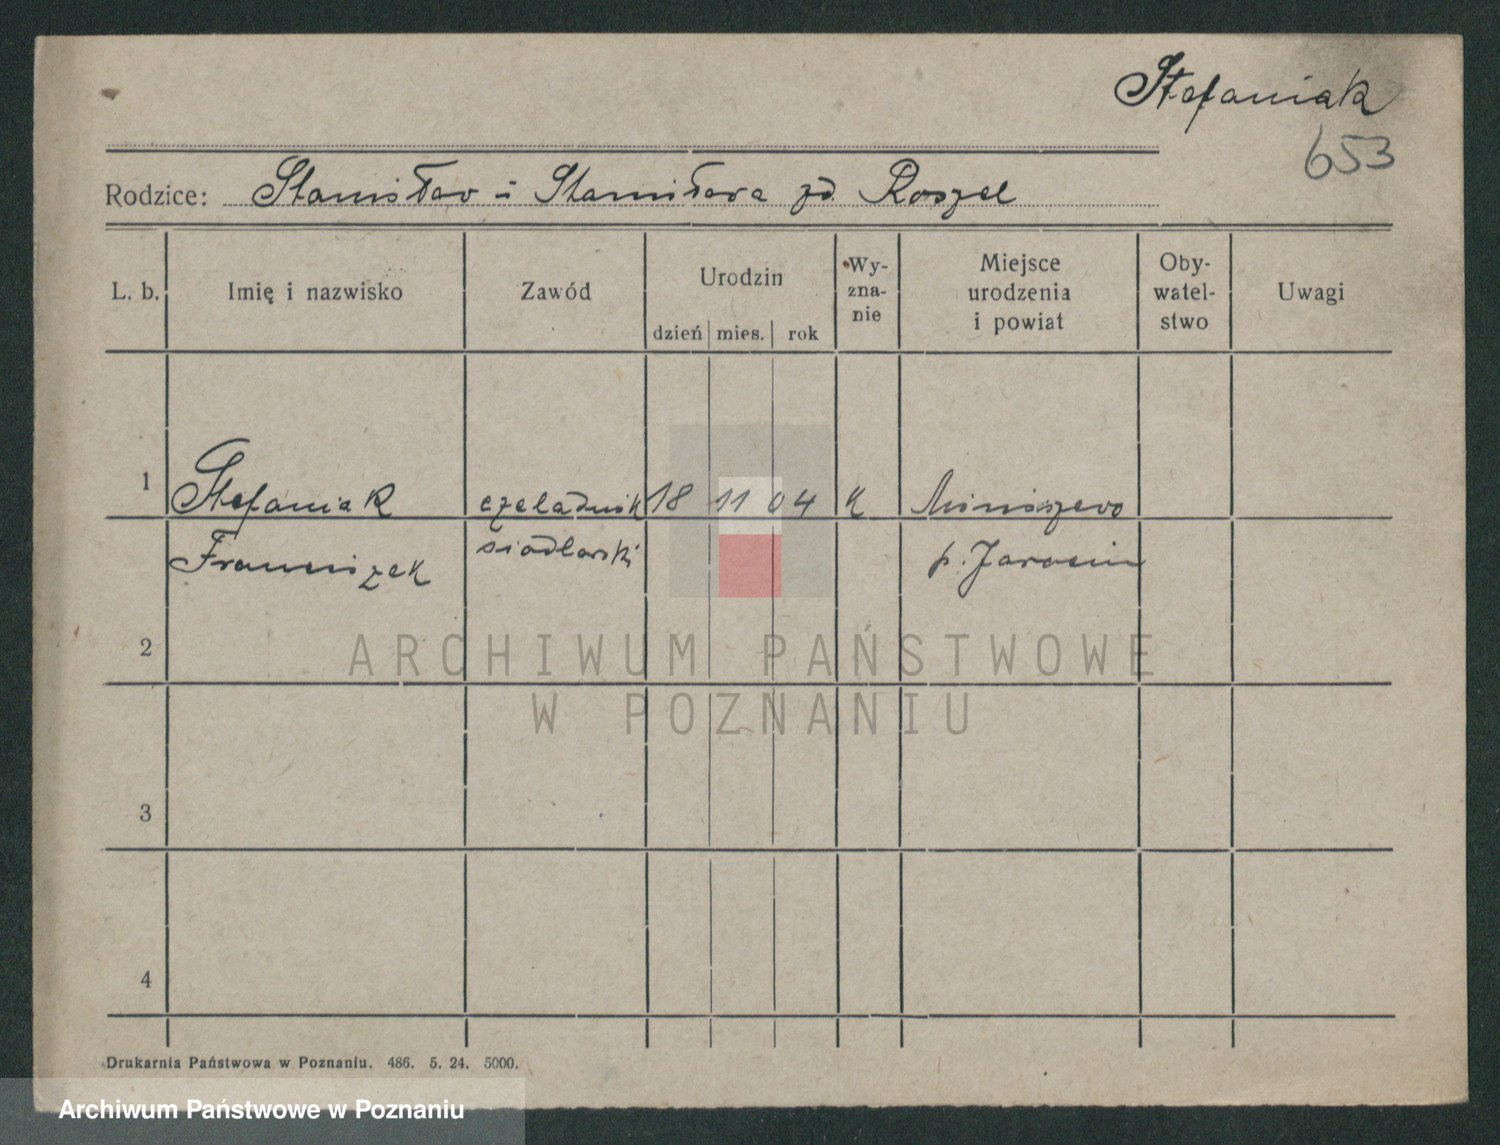 Stefaniak
653
Rodzice: Stanisław i Stanisława zd Roszel
L. b.
Imię i nazwisko
Zawód
Urodzin
dzień mies. rok
Wy-
zna-
nie
Miejsce
urodzenia
i powiat
Oby-
watel-
stwo
Uwagi
1 Stefaniak czeladnik 18 11 04 K Miniszewo
Franciszek siodlarski p. Jarocin
2
ARCHIWUM PAŃSTWOWE
W POZNANIU
3
4
Drukarnia Państwowa w Poznaniu. 486. 5. 24. 5000.
Archiwum Państwowe w Poznaniu